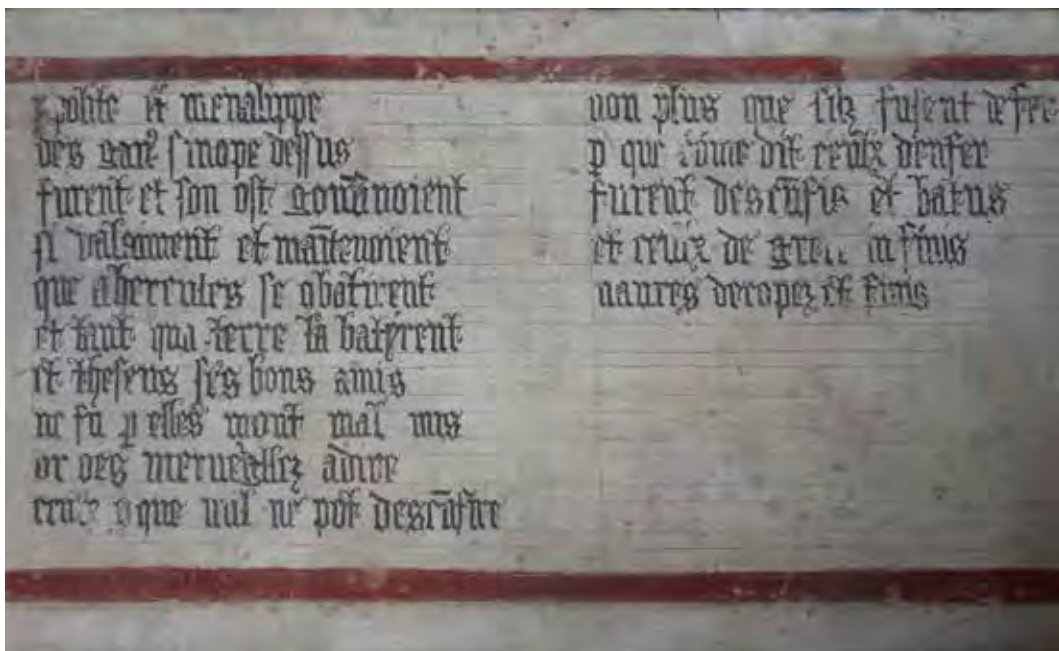 ypolite et menalippe
des gar̃ sinope dessus
furent et son ost gou̅noient
si vala̅ment et mai̅tenoient
que a hercules se ꝯbatirent
et tant qua terre la batirent
et theseus ses bons amis
ne fu ꝑ elles mont mal mis
or oes merueilles a dire
ceulx que nul ne pot desco̅fire
non plus que silz fusent de fer
ꝑ que co̅me dit ceulx denfer
furent desco̅fis et batus
et ceulx de grece infinis
naures decopez et